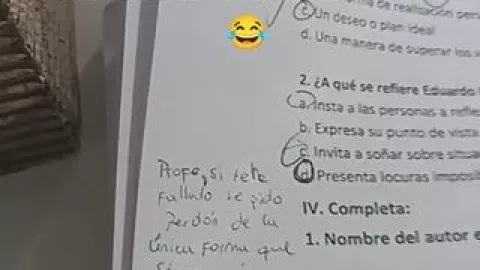 de realización pers
c. Un deseo o plan ideal
d. Una manera de superar los
2. ¿A qué se refiere Eduardo
a. Insta a las personas a refle
b. Expresa su punto de vista
c. Invita a soñar sobre situa
d. Presenta locuras imposib
Profe, si te he
fallado te pido
Perdón de la
única forma que
IV. Completa:
1. Nombre del autor e